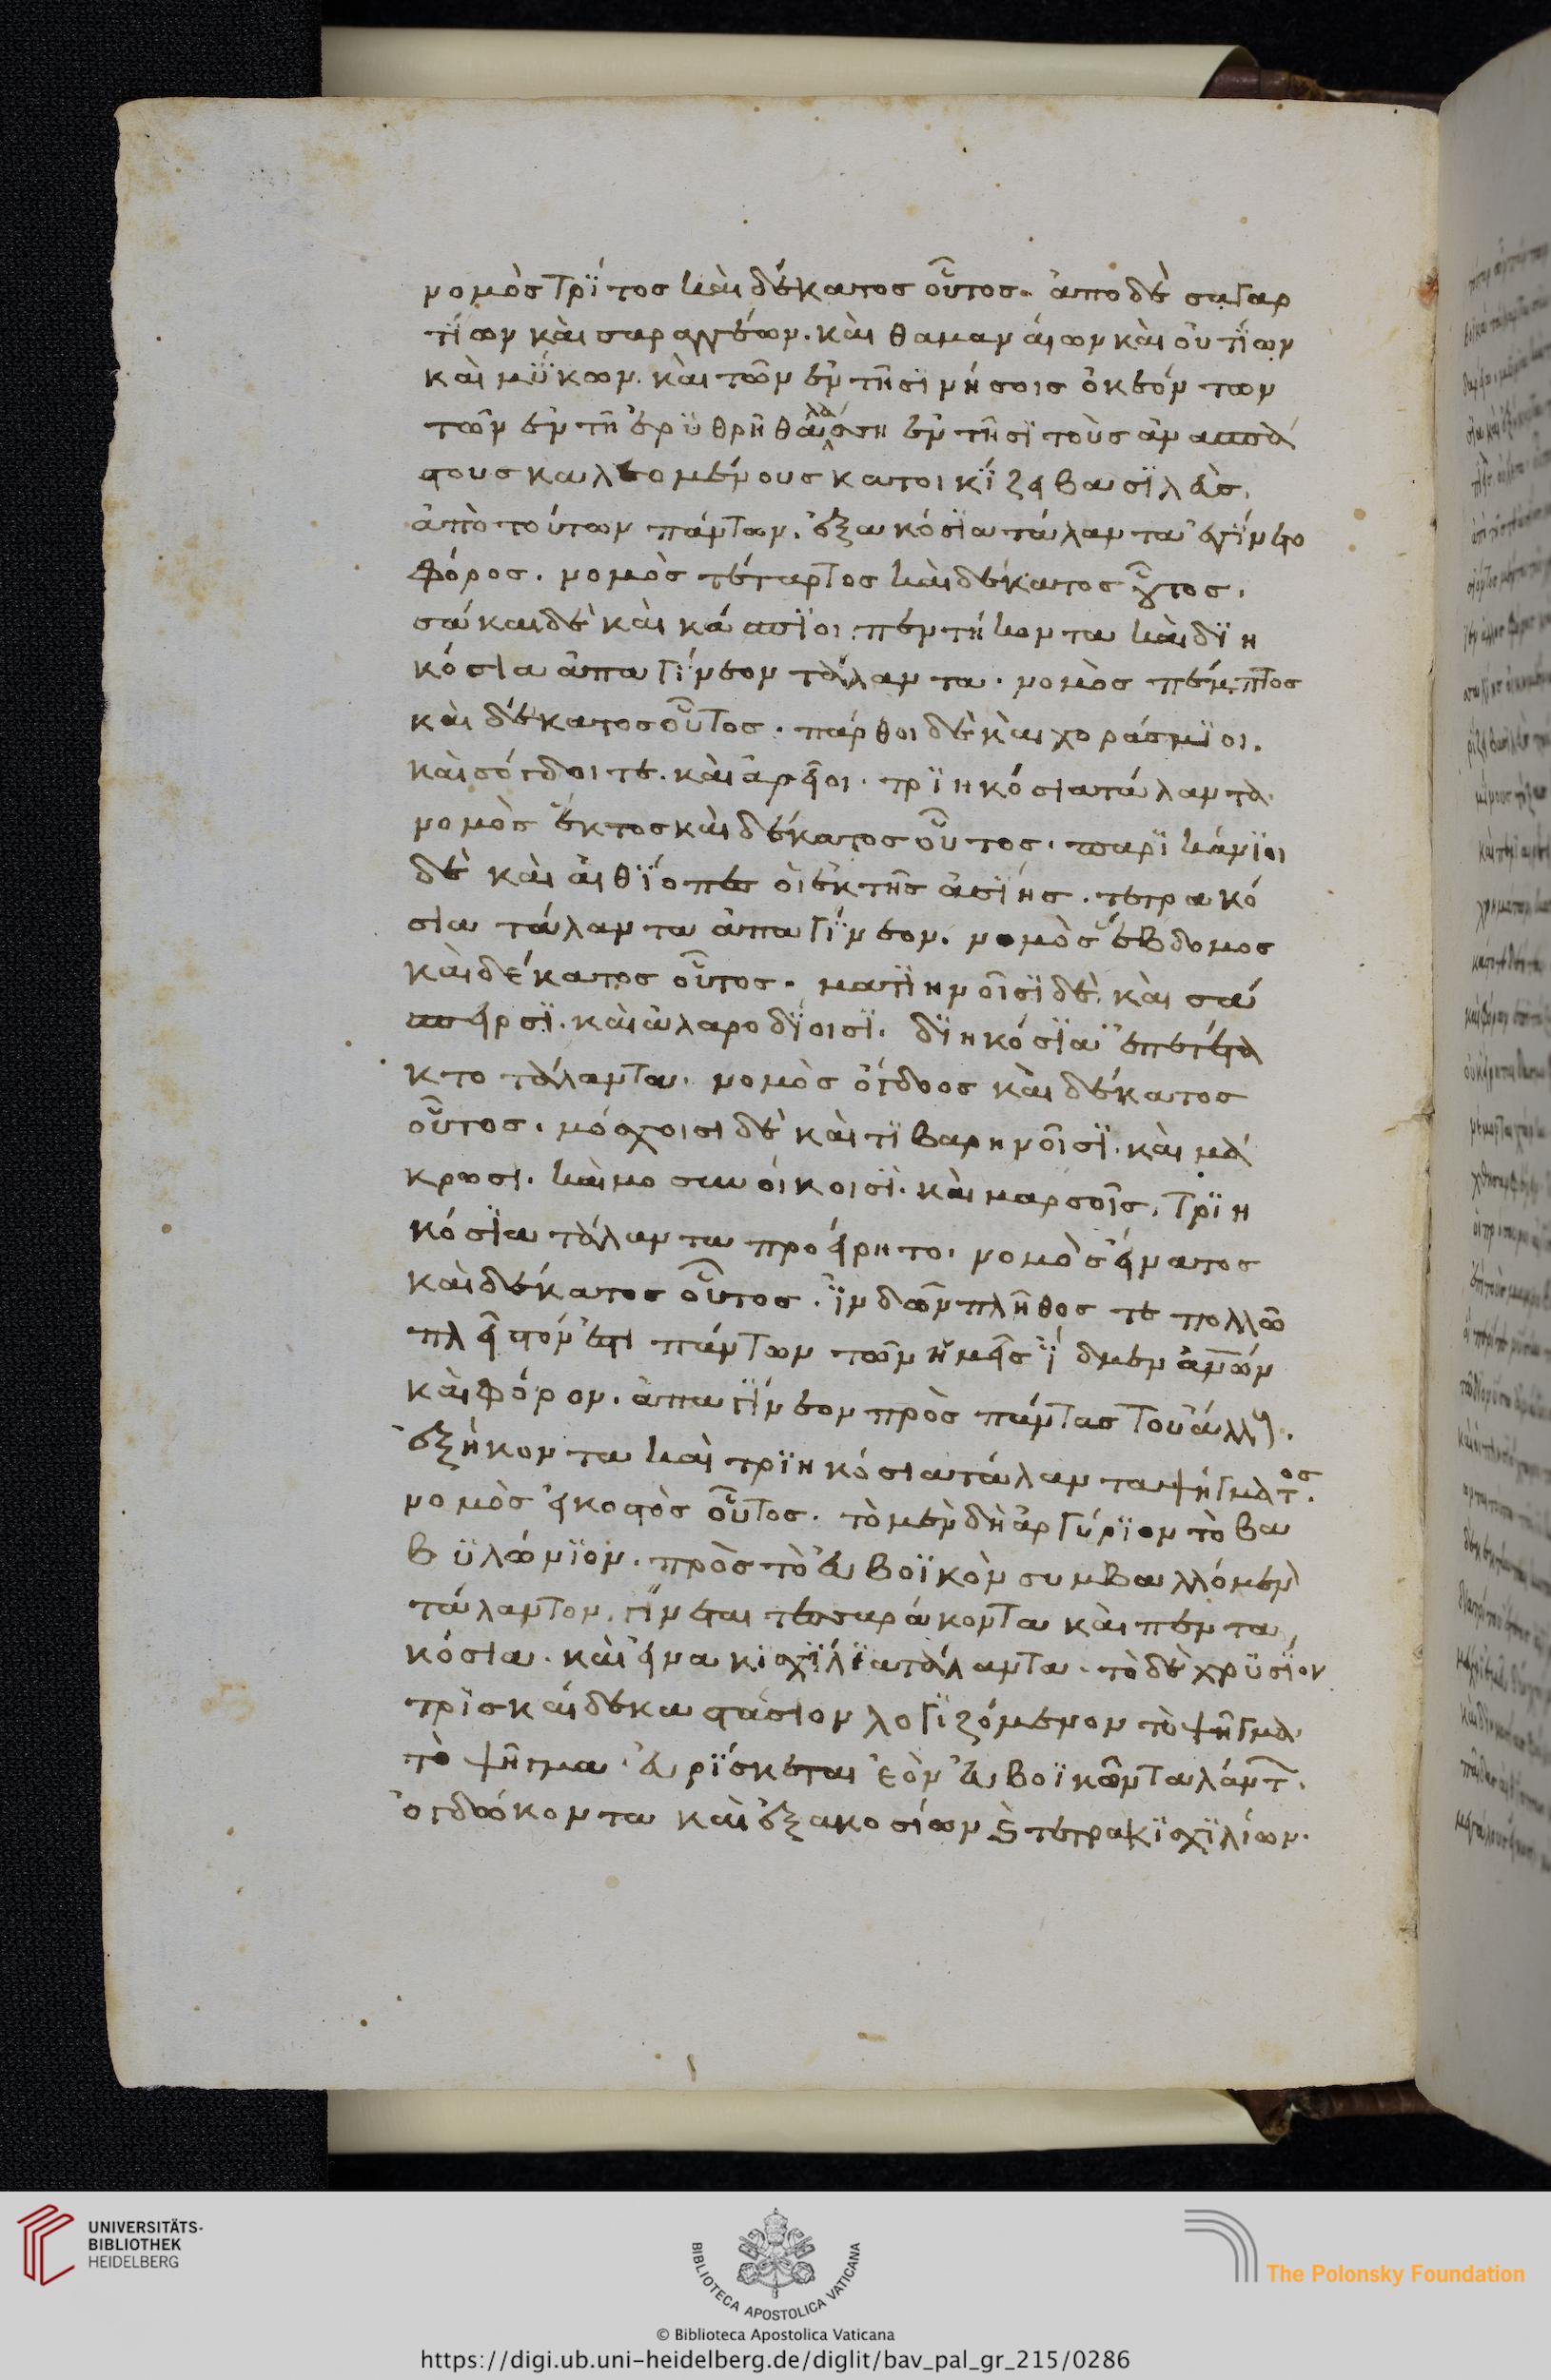 νομὸς τρίτος καὶ δέκατος οὗτος. ἀπο δὲ σαγαρ
τίων καὶ σαραγγέων. καὶ θαμαναίων καὶ οὐτίων
καὶ μύκων. καὶ τῶν ἐν τῇσι νήσοις οἰκεόντων
τῶν ἐν τῇ ἐρυθρῇ θαλάσση ἐν τῇσι τοὺς ἀνασπά
στους καλεομένους κατοικίζει βασιλεὺς.
ἀπὸ τούτων πάντων. ἑξακόσια τάλαντα ἐγίνετο
φόρος. νομὸς τέταρτος καὶ δέκατος οὗτος.
σάκαι δὲ καὶ κάσπιοι. πεντήκοντα καὶ διη
κόσια ἀπαγίνεον τάλαντα. νομὸς πέμπτος
καὶ δέκατος οὗτος. πάρθοι δὲ καὶ χοράσμιοι.
καὶ σόγδοι τε. καὶ ἄρειοι. τριηκόσια τάλαντα.
νομὸς ἕκτος καὶ δέκατος οὗτος. παρικάνιοι
δὲ καὶ αἰθίοπες οἱ ἐκ τῆς ἀσίης. τετρακό
σια τάλαντα ἀπαγίνεον. νομὸς ἕβδομος
καὶ δέκατος οὗτος. ματιηνοῖσι δὲ καὶ σά
σπειρσι. καὶ ἀλαροδίοισι. διηκόσια ἐπετέτα
κτο τάλαντα. νομὸς ὄγδοος καὶ δέκατος
οὗτος. μόσχοισι δὲ καὶ τιβαρηνοῖσι. καὶ μά
κρωσι. καὶ μοσυνοίκοισι. καὶ μαρσοῖς. τριη
κόσια τάλαντα προείρητο. νομὸς εἴνατος
καὶ δέκατος οὗτος. ἰνδῶν πλῆθος τε πολλῶ
πλεῖστόν ἐστι πάντων τῶν ἡμεῖς ἴδμεν ἀνθρώπων
καὶ φόρον. ἀπαγίνεον πρὸς πάντας τοὺς ἄλλους.
ἑξήκοντα καὶ τριηκόσια τάλαντα ψήγματος.
νομὸς εἰκοστὸς οὗτος. τὸ μὲν δὴ ἀργύριον τὸ βα
βυλώνιον. πρὸς τὸ εὐβοϊκὸν συμβαλλόμενον
τάλαντον. γίνεται τεσσαράκοντα καὶ πεντα
κόσια. καὶ εἰνακισχίλια τάλαντα. τὸ δὲ χρυσίον
τρισκαίδεκα στάσιον λογιζόμενον τὸ ψῆγμα.
τὸ ψῆγμα εὑρίσκεται ἐὸν εὐβοϊκῶν ταλάντων.
ὀγδώκοντα καὶ ἑξακοσίων καὶ τετρακισχιλίων.
UNIVERSITÄTS-
BIBLIOTHEK
HEIDELBERG
BIBLIOTECA APOSTOLICA VATICANA
The Polonsky Foundation
© Biblioteca Apostolica Vaticana
https://digi.ub.uni-heidelberg.de/diglit/bav_pal_gr_215/0286